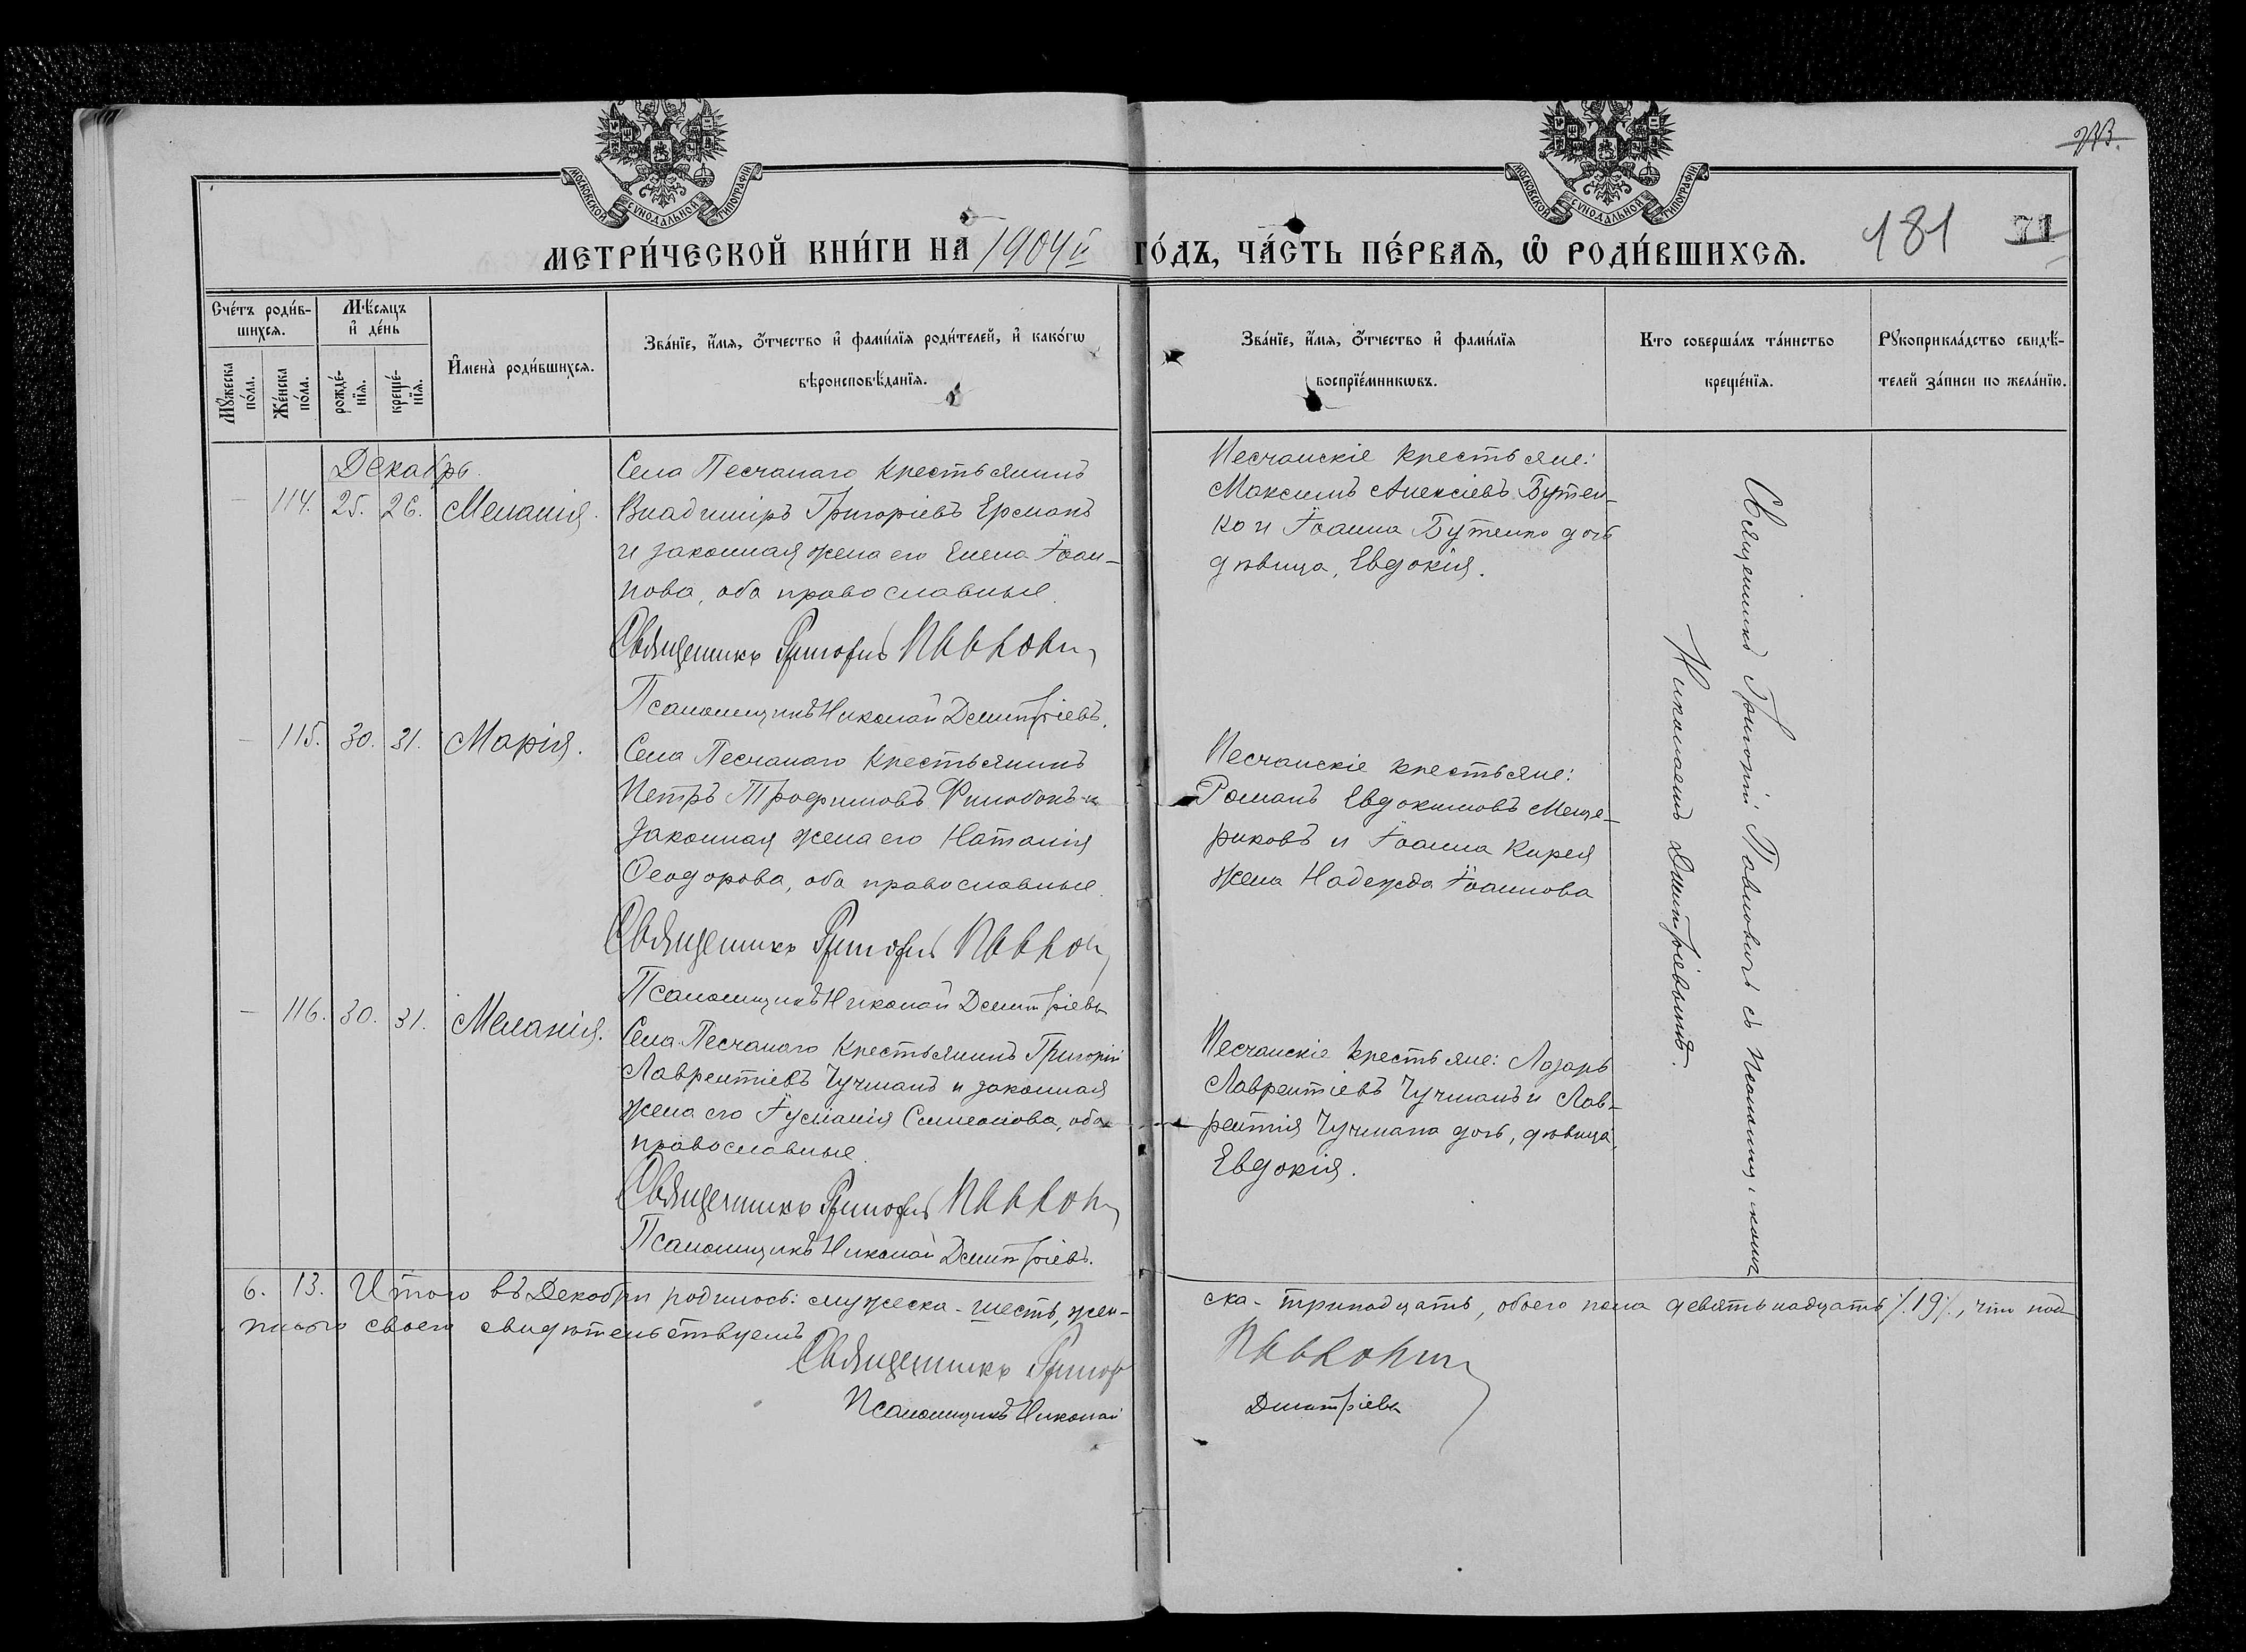 МОСКОВСКОЙ СУНОДАЛЬНОЙ ТИПОГРАФІИ
МОСКОВСКОЙ СУНОДАЛЬНОЙ ТИПОГРАФІИ
МЕТРИ́ЧЕСКОЙ КНИ́ГИ НА 1904й ГО́ДЪ, ЧА́СТЬ ПЕ́РВАѦ, Ѡ҆ РОДИ́ВШИХСѦ.
181 71
Сче́тъ роди́в-
шихсѧ.
Мѣ́сѧцъ
и҆ де́нь
Мꙋ́жеска
по́ла.
Же́нска
по́ла.
рожде́-
нїѧ.
креще́-
нїѧ.
И҆мена̀ роди́вшихсѧ.
Зва́нїе, и҆́мѧ, ѻ҆́тчество и҆ фами́лїѧ роди́телей, и҆ како́гѡ
вѣроисповѣ́данїѧ.
Зва́нїе, и҆́мѧ, ѻ҆́тчество и҆ фами́лїѧ
воспрїе́мникѡвъ.
Кто соверша́лъ та́инство
креще́нїѧ.
Рꙋкоприкла́дство свидѣ́-
телей за́писи по жела́нїю.
Декабрь.
— 114. 25. 26. Меланія.
Села Песчанаго крестьянинъ
Владиміръ Григоріевъ Ерманъ
и законная жена его Елена Іоан-
нова, оба православные.
Священникъ Григорій Павлович
Псаломщикъ Николай Дмитріевъ.
Песчанскіе крестьяне:
Максимъ Алексіевъ Бутен-
ко и Іоанна Бутенко дочь
дѣвица, Евдокія.
— 115. 30. 31. Марія.
Села Песчанаго крестьянинъ
Петръ Трофимовъ Филобокъ и
законная жена его Наталія
Ѳеодорова, оба православные.
Священникъ Григорій Павлович
Псаломщикъ Николай Дмитріевъ
Песчанскіе крестьяне:
Романъ Евдокимовъ Меще-
риковъ и Іоанна Кирея
жена Надежда Іоаннова
— 116. 30. 31. Меланія.
Села Песчанаго крестьянинъ Григорій
Лаврентіевъ Чучманъ и законная
жена его Іуліанія Симеонова, оба
православные.
Священникъ Григорій Павлович
Псаломщикъ Николай Дмитріевъ.
Песчанскіе крестьяне: Лазарь
Лаврентіевъ Чучманъ и Лав-
рентія Чучмана дочь, дѣвица,
Евдокія.
Священникъ Григорій Павловичъ съ псаломщикомъ
Николаемъ Дмитріевымъ.
6. 13. Итого въ Декабрѣ родилось: мужеска - шесть, жен-
ска - тринадцать, обоего пола девятьнадцать /.19/., что под-
писью своею свидѣтельствуемъ
Священникъ Григор Павлович
Псаломщикъ Николай Дмитріевъ